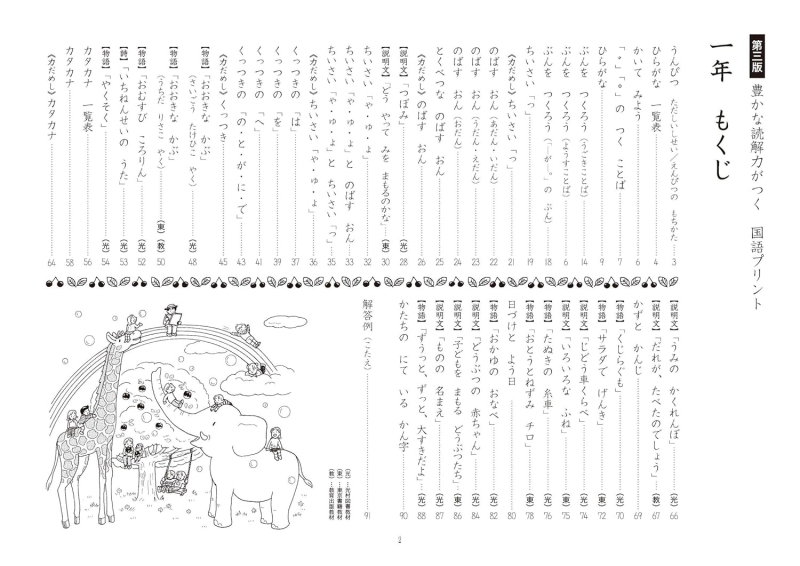 第三版 豊かな読解力がつく 国語プリント
一年 もくじ
うんぴつ ただしいしせい／えんぴつの もちかた 3
ひらがな 一覧表 4
かいて みよう 6
「゛」「゜」の つく ことば 7
ひらがな 9
ぶんを つくろう（うごきことば） 14
ぶんを つくろう（ようすことば） 6
ぶんを つくろう（「―が―。」の ぶん） 18
ちいさい「っ」 19
《力だめし》ちいさい「っ」 21
のばす おん（あだん・いだん） 22
のばす おん（うだん・えだん） 23
のばす おん（おだん） 24
とくべつな のばす おん 25
《力だめし》のばす おん 26
【説明文】「つぼみ」（光） 28
【説明文】「どう やって みを まもるのかな」（東） 30
ちいさい「ゃ・ゅ・ょ」 32
ちいさい「ゃ・ゅ・ょ」と のばす おん 33
ちいさい「ゃ・ゅ・ょ」と ちいさい「っ」 35
《力だめし》ちいさい「ゃ・ゅ・ょ」 36
くっつきの「は」 37
くっつきの「を」 39
くっつきの「へ」 41
くっつきの「の・と・が・に・で」 43
《力だめし》くっつき 45
【物語】「おおきな かぶ」
（さいごう たけひこ やく）（光） 48
【物語】「おおきな かぶ」
（うちだ りさこ やく）（東）（教） 50
【物語】「おむすび ころりん」（光） 52
【詩】「いちねんせいの うた」（光） 53
【物語】「やくそく」（光） 54
カタカナ 一覧表 56
カタカナ 58
《力だめし》カタカナ 64
【説明文】「うみの かくれんぼ」（光） 66
【説明文】「だれが、たべたのでしょう」（教） 67
かずと かんじ 69
【物語】「くじらぐも」（光） 70
【物語】「サラダで げんき」（東） 72
【説明文】「じどう車くらべ」（光） 74
【説明文】「いろいろな ふね」（東） 75
【物語】「たぬきの 糸車」（光） 76
【物語】「おとうとねずみ チロ」（東） 78
日づけと よう日 80
【物語】「おかゆの おなべ」（光） 82
【説明文】「どうぶつの 赤ちゃん」（光） 84
【説明文】「子どもを まもる どうぶつたち」（東） 86
【説明文】「ものの 名まえ」（光） 87
【物語】「ずうっと、ずっと、大すきだよ」（光） 88
かたちの にて いる かん字 90
解答例（こたえ） 91
（光）…光村図書教材
（東）…東京書籍教材
（教）…教育出版教材
2